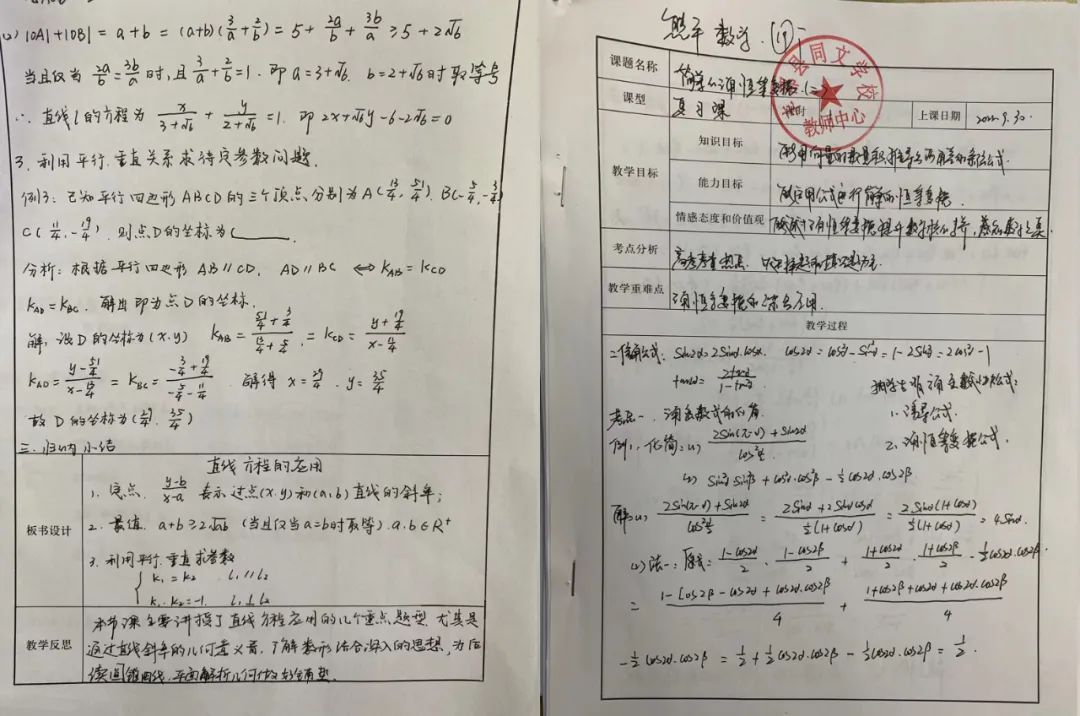 (2) |OA|+|OB| = a+b = (a+b)(3/a+2/b) = 5+2a/b+3b/a ≥ 5+2√6
当且仅当 2a/b=3b/a 时,且 3/a+2/b=1. 即 a=3+√6. b=2+√6时取等号
∴ 直线l的方程为 x/(3+√6) + y/(2+√6) =1. 即 2x+√6y-6-2√6=0
3. 利用平行.垂直关系求待定参数问题.
例3: 已知平行四边形ABCD的三个顶点分别为A(13/4, 51/4). B(-5/4,-3/4)
C(11/4,-19/4). 则点D的坐标为
分析: 根据平行四边形 AB∥CD, AD∥BC ⟺ K_AB=K_CD
K_AD=K_BC. 解出即为点D的坐标.
解: 设D的坐标为(x.y) K_AB = (51/4+3/4)/(13/4+5/4) = K_CD = (y+19/4)/(x-11/4)
K_AD = (y-51/4)/(x-13/4) = K_BC = (-3/4+19/4)/(-5/4-11/4) . 解得 x=29/4. y=35/4
故D的坐标为(29/4. 35/4)
三. 归纳小结
板书设计
直线方程的应用
1. 定点. (y-b)/(x-a) 表示过点(x.y)和(a,b)直线的斜率;
2. 最值. a+b≥2√ab (当且仅当a=b时取等). a.b∈R⁺
3. 利用平行.垂直求参数
{ K₁=K₂ l₁∥l₂
K₁·K₂=-1. l₁⊥l₂
教学反思
本节课主要讲授了直线方程应用的几个重点题型 尤其是
通过直线斜率的几何意义, 了解数形结合深入的思想, 为后
续圆锥曲线,平面解析几何做好铺垫.
数学 (19)
县同文学校
教师中心
课题名称
简单的三角恒等变换(二)
课型
复习课
课时
上课日期
2022.9.30.
教学目标
知识目标
能用向量的数量积推导出两角差的余弦公式.
能力目标
能运用公式进行简单的恒等变换.
情感态度和价值观
考点分析
高考考查热点.
教学重难点
三角恒等变换的综合应用.
教学过程
二倍角公式: Sin2α=2Sinα.cosα. cos2α=cos²α-Sin²α=1-2Sin²α=2cos²α-1
tan2α=2tanα/(1-tan²α).
考点一. 三角函数式的化简.
1. 诱导公式.
例1. 化简: (1) (2Sin(π-α)+Sin2α)/cos²(α/2)
2. 三角恒等变换公式.
(2) Sin²α·Sin²β+cos²α·cos²β-½cos2α·cos2β
解: (1) (2Sin(π-α)+Sin2α)/cos²(α/2) = (2Sinα+2Sinαcosα)/(½(1+cosα)) = 2Sinα(1+cosα)/(½(1+cosα)) = 4Sinα.
(2) 法一: 原式= (1-cos2α)/2 · (1-cos2β)/2 + (1+cos2α)/2 · (1+cos2β)/2 - ½cos2α·cos2β.
= (1-cos2β-cos2α+cos2αcos2β)/4 + (1+cos2β+cos2α+cos2αcos2β)/4
-½cos2α·cos2β = ½+½cos2α·cos2β-½cos2α·cos2β = ½.